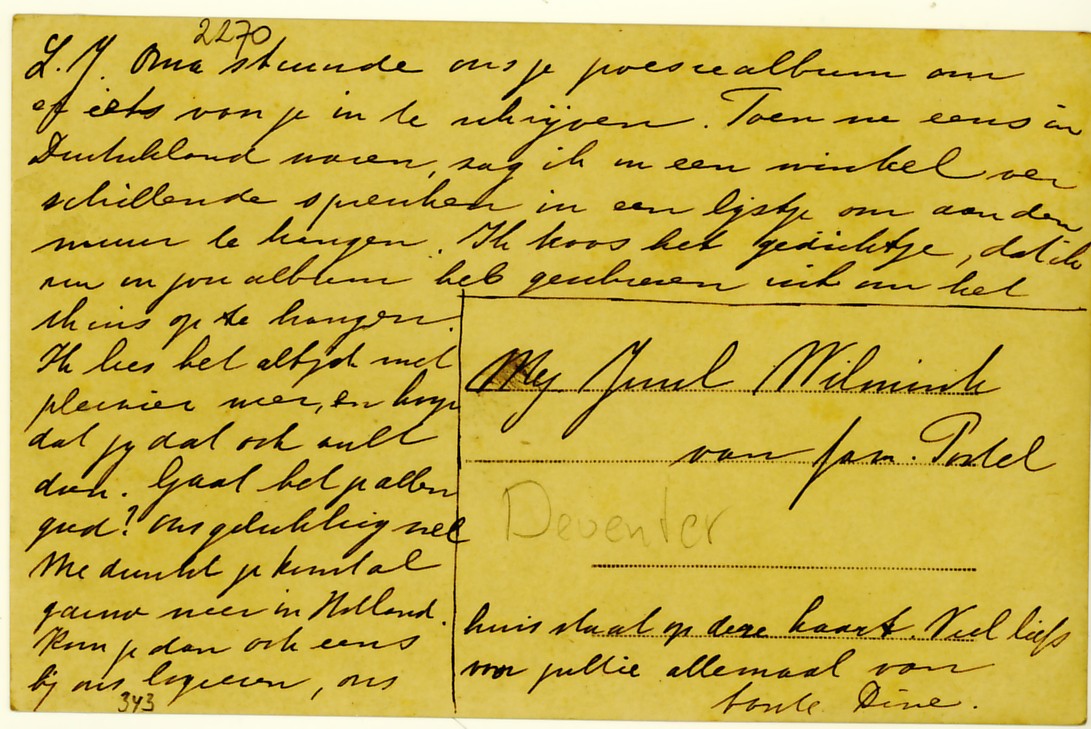 2270
L.J. Oma stuurde ons je poesiealbum om
er iets van je in te schrijven. Toen we eens in
Duitschland waren, zag ik in een winkel ver
schillende spreuken in een lijstje om aan den
muur te hangen. Ik koos het gedichtje, dat ik
nu in jou album heb geschreven uit om het
thuis op te hangen.
Ik lees het altijd met
plezier weer, en hoop
dat jij dat ook zult
doen. Gaat het je allen
goed? Ons gelukkig wel
Me dunkt je komt al
gauw weer in Holland.
Kom je dan ook eens
bij ons logeeren, ons
343
Mej Juul Wilmink
van fam. Postel
Deventer
huis staat op deze kaart. Veel liefs
voor jullie allemaal van
tante Dine.